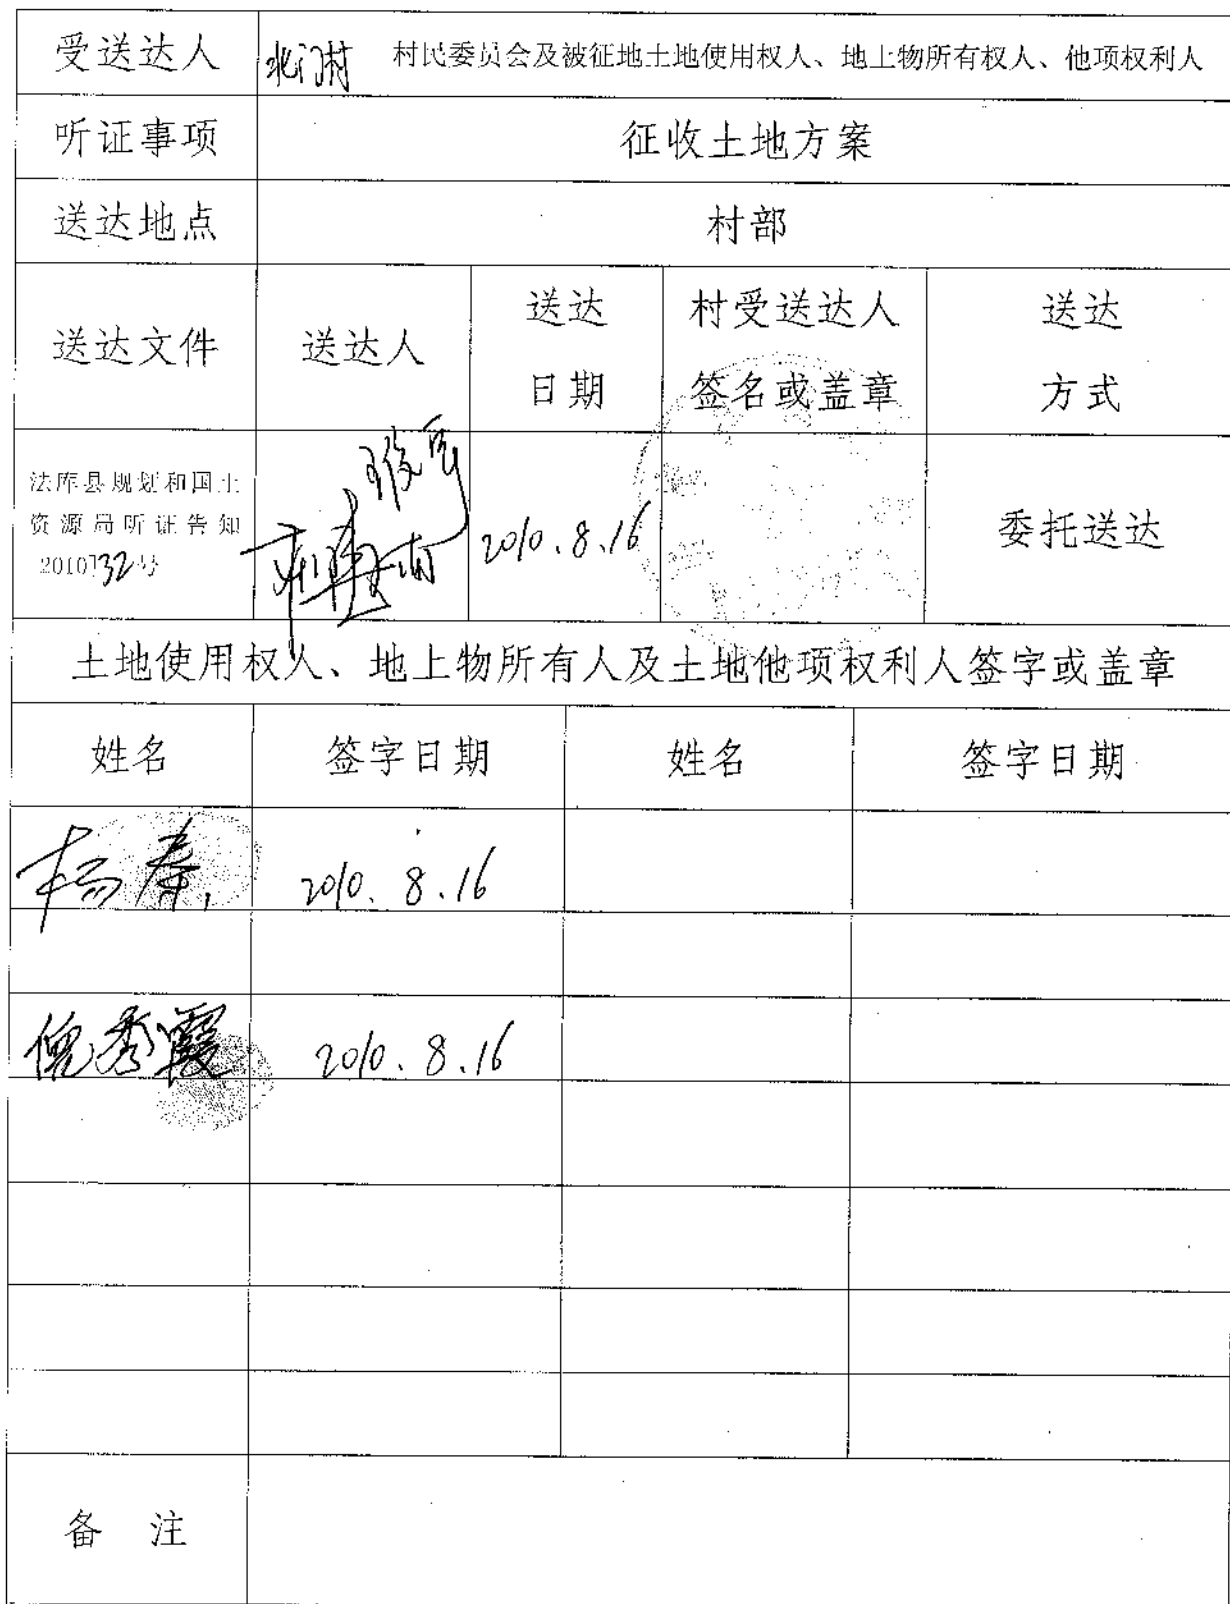 受送达人 北门村 村民委员会及被征地土地使用权人、地上物所有权人、他项权利人
听证事项 征收土地方案
送达地点 村部
送达文件 送达人 送达日期 村受送达人签名或盖章 送达方式
法库县规划和国土
资源局听证告知
2010]32号
2010.8.16
委托送达
土地使用权人、地上物所有人及土地他项权利人签字或盖章
姓名 签字日期 姓名 签字日期
杨 2010.8.16
倪秀霞 2010.8.16
备 注